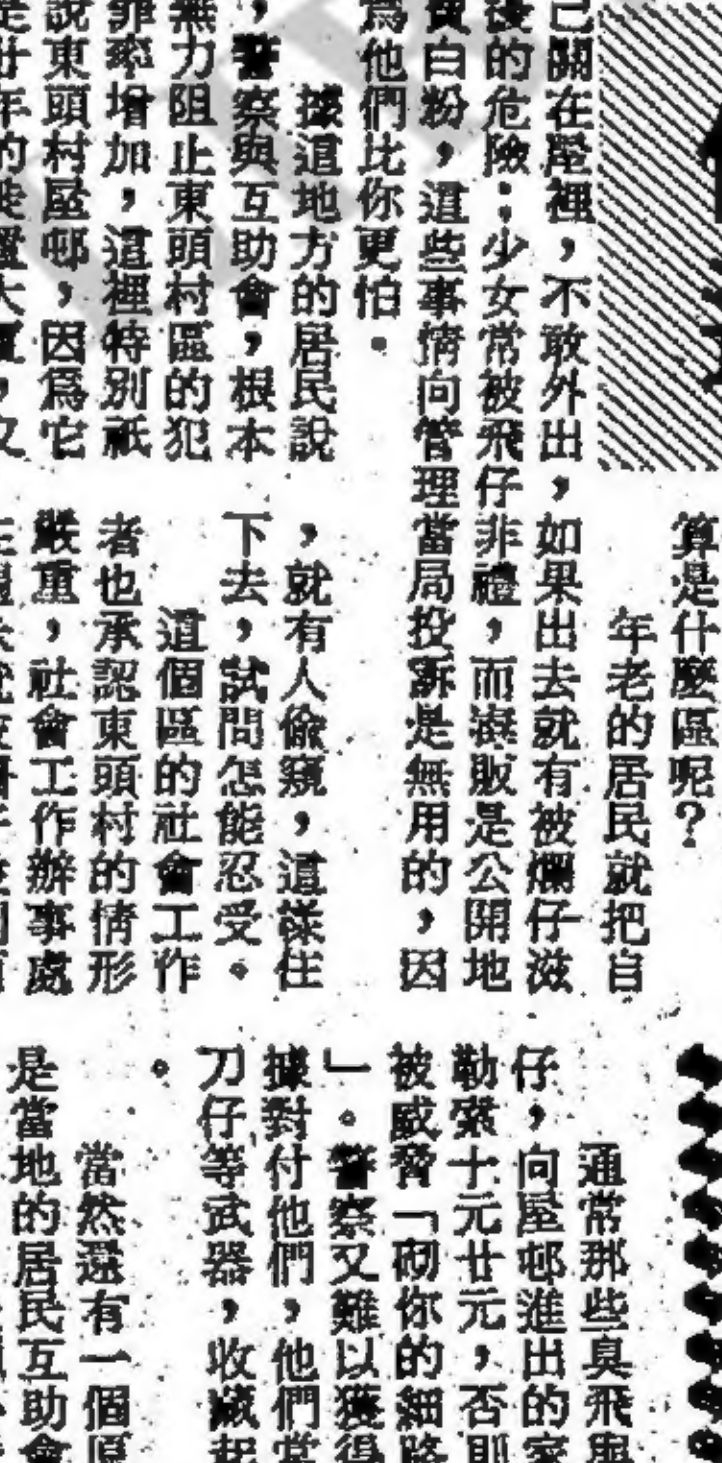 算是什麼區呢？
年老的居民就把自
己關在屋裡，不敢外出，如果出去就有被爛仔滋
的危險：少女常被飛仔非禮，而毒販是公開地
賣白粉，這些事情向管理當局投訴是無用的，因
爲他們比你更怕。
據這地方的居民說
，警察與互助會，根本
無力阻止東頭村區的犯
罪率增加，這裡特別祇
說東頭村屋邨，因爲它
是廿年的徙置大廈，又
，就有人偷窺，這樣住
下去，試問怎能忍受。
這個區的社會工作
者也承認東頭村的情形
嚴重，社會工作辦事處
通常那些臭飛與
仔，向屋邨進出的家
勒索十元廿元，否則
被威脅「砌你的細路
」。警察又難以獲得
據對付他們，他們常
刀仔等武器，收藏起
。
當然還有一個
是當地的居民互助會